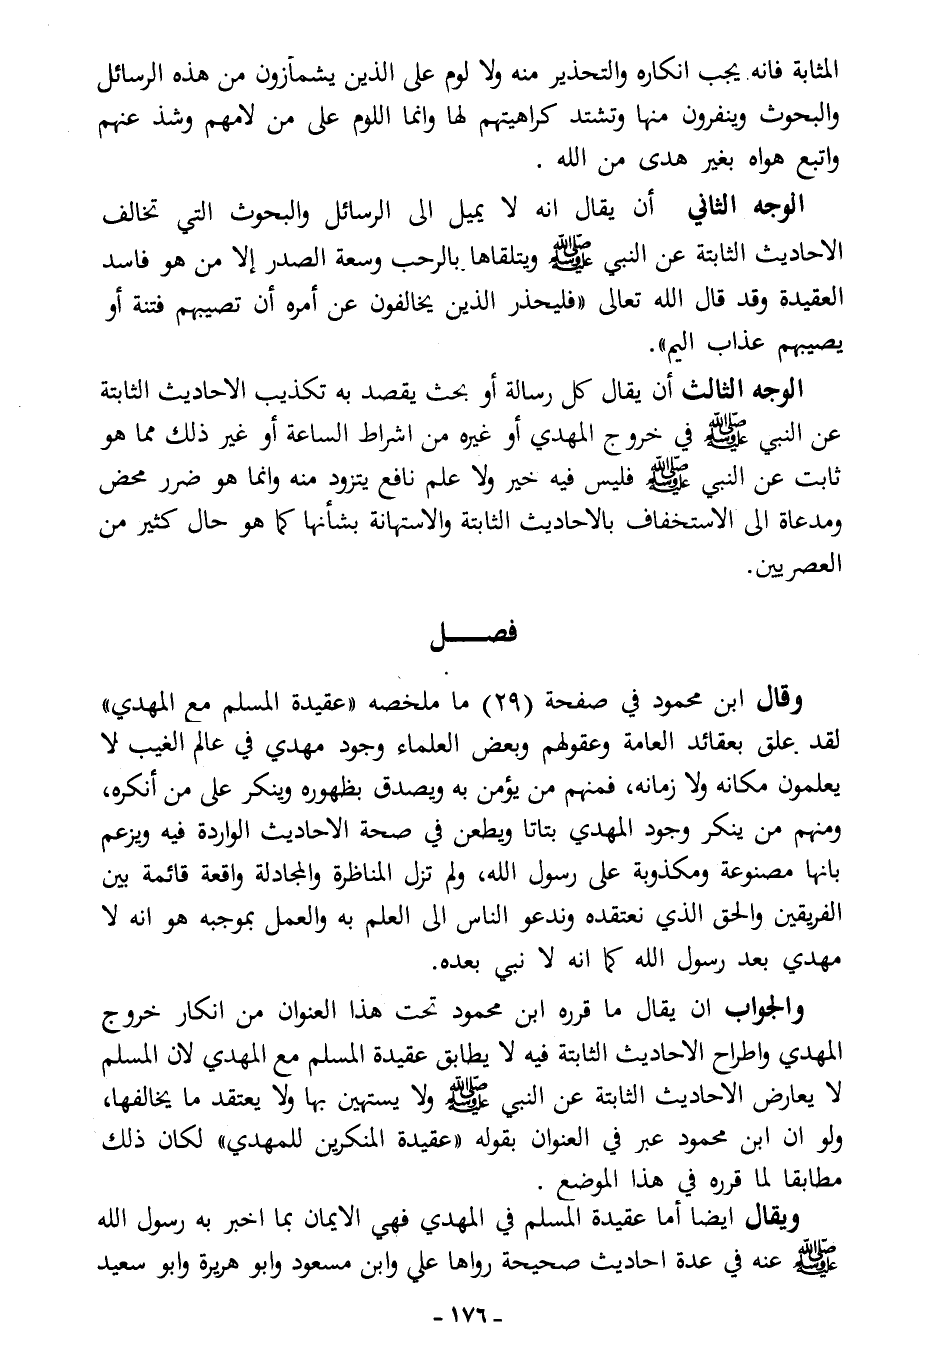 المثابة فانه يجب انكاره والتحذير منه ولا لوم على الذين يشمأزون من هذه الرسائل
والبحوث وينفرون منها وتشتد كراهيتهم لها وانما اللوم على من لامهم وشذ عنهم
واتبع هواه بغير هدى من الله .
الوجه الثاني أن يقال انه لا يميل الى الرسائل والبحوث التي تخالف
الاحاديث الثابتة عن النبي ﷺ ويتلقاها بالرحب وسعة الصدر إلا من هو فاسد
العقيدة وقد قال الله تعالى «فليحذر الذين يخالفون عن أمره أن تصيبهم فتنة أو
يصيبهم عذاب اليم».
الوجه الثالث أن يقال كل رسالة أو بحث يقصد به تكذيب الاحاديث الثابتة
عن النبي ﷺ في خروج المهدي أو غيره من اشراط الساعة أو غير ذلك مما هو
ثابت عن النبي ﷺ فليس فيه خير ولا علم نافع يتزود منه وانما هو ضرر محض
ومدعاة الى الاستخفاف بالاحاديث الثابتة والاستهانة بشأنها كما هو حال كثير من
العصريين.
فصـــل
وقال ابن محمود في صفحة (٢٩) ما ملخصه «عقيدة المسلم مع المهدي»
لقد علق بعقائد العامة وعقولهم وبعض العلماء وجود مهدي في عالم الغيب لا
يعلمون مكانه ولا زمانه، فمنهم من يؤمن به ويصدق بظهوره وينكر على من أنكره،
ومنهم من ينكر وجود المهدي بتاتا ويطعن في صحة الاحاديث الواردة فيه ويزعم
بانها مصنوعة ومكذوبة على رسول الله، ولم تزل المناظرة والمجادلة واقعة قائمة بين
الفريقين والحق الذي نعتقده وندعو الناس الى العلم به والعمل بموجبه هو انه لا
مهدي بعد رسول الله كما انه لا نبي بعده.
والجواب ان يقال ما قرره ابن محمود تحت هذا العنوان من انكار خروج
المهدي واطراح الاحاديث الثابتة فيه لا يطابق عقيدة المسلم مع المهدي لان المسلم
لا يعارض الاحاديث الثابتة عن النبي ﷺ ولا يستهين بها ولا يعتقد ما يخالفها،
ولو ان ابن محمود عبر في العنوان بقوله «عقيدة المنكرين للمهدي» لكان ذلك
مطابقا لما قرره في هذا الموضع .
ويقال ايضا أما عقيدة المسلم في المهدي فهي الايمان بما اخبر به رسول الله
ﷺ عنه في عدة احاديث صحيحة رواها علي وابن مسعود وابو هريرة وابو سعيد
- ١٧٦ -